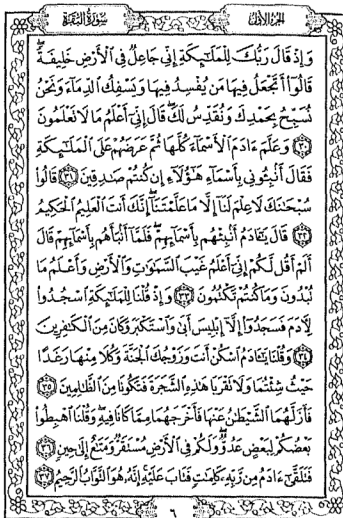 الجزء الأول
سورة البقرة
وَإِذْ قَالَ رَبُّكَ لِلْمَلَٰٓئِكَةِ إِنِّى جَاعِلٌ فِى ٱلْأَرْضِ خَلِيفَةً ۖ
قَالُوٓا۟ أَتَجْعَلُ فِيهَا مَن يُفْسِدُ فِيهَا وَيَسْفِكُ ٱلدِّمَآءَ وَنَحْنُ
نُسَبِّحُ بِحَمْدِكَ وَنُقَدِّسُ لَكَ ۖ قَالَ إِنِّىٓ أَعْلَمُ مَا لَا تَعْلَمُونَ
٣٠ وَعَلَّمَ ءَادَمَ ٱلْأَسْمَآءَ كُلَّهَا ثُمَّ عَرَضَهُمْ عَلَى ٱلْمَلَٰٓئِكَةِ
فَقَالَ أَنۢبِـُٔونِى بِأَسْمَآءِ هَٰٓؤُلَآءِ إِن كُنتُمْ صَٰدِقِينَ ٣١ قَالُوا۟
سُبْحَٰنَكَ لَا عِلْمَ لَنَآ إِلَّا مَا عَلَّمْتَنَآ ۖ إِنَّكَ أَنتَ ٱلْعَلِيمُ ٱلْحَكِيمُ
٣٢ قَالَ يَٰٓـَٔادَمُ أَنۢبِئْهُم بِأَسْمَآئِهِمْ ۖ فَلَمَّآ أَنۢبَأَهُم بِأَسْمَآئِهِمْ قَالَ
أَلَمْ أَقُل لَّكُمْ إِنِّىٓ أَعْلَمُ غَيْبَ ٱلسَّمَٰوَٰتِ وَٱلْأَرْضِ وَأَعْلَمُ مَا
تُبْدُونَ وَمَا كُنتُمْ تَكْتُمُونَ ٣٣ وَإِذْ قُلْنَا لِلْمَلَٰٓئِكَةِ ٱسْجُدُوا۟
لِءَادَمَ فَسَجَدُوٓا۟ إِلَّآ إِبْلِيسَ أَبَىٰ وَٱسْتَكْبَرَ وَكَانَ مِنَ ٱلْكَٰفِرِينَ
٣٤ وَقُلْنَا يَٰٓـَٔادَمُ ٱسْكُنْ أَنتَ وَزَوْجُكَ ٱلْجَنَّةَ وَكُلَا مِنْهَا رَغَدًا
حَيْثُ شِئْتُمَا وَلَا تَقْرَبَا هَٰذِهِ ٱلشَّجَرَةَ فَتَكُونَا مِنَ ٱلظَّٰلِمِينَ ٣٥
فَأَزَلَّهُمَا ٱلشَّيْطَٰنُ عَنْهَا فَأَخْرَجَهُمَا مِمَّا كَانَا فِيهِ ۖ وَقُلْنَا ٱهْبِطُوا۟
بَعْضُكُمْ لِبَعْضٍ عَدُوٌّ ۖ وَلَكُمْ فِى ٱلْأَرْضِ مُسْتَقَرٌّ وَمَتَٰعٌ إِلَىٰ حِينٍ ٣٦
فَتَلَقَّىٰٓ ءَادَمُ مِن رَّبِّهِۦ كَلِمَٰتٍ فَتَابَ عَلَيْهِ ۚ إِنَّهُۥ هُوَ ٱلتَّوَّابُ ٱلرَّحِيمُ ٣٧
٦